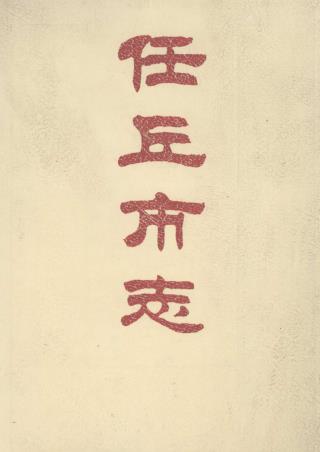 任丘市志